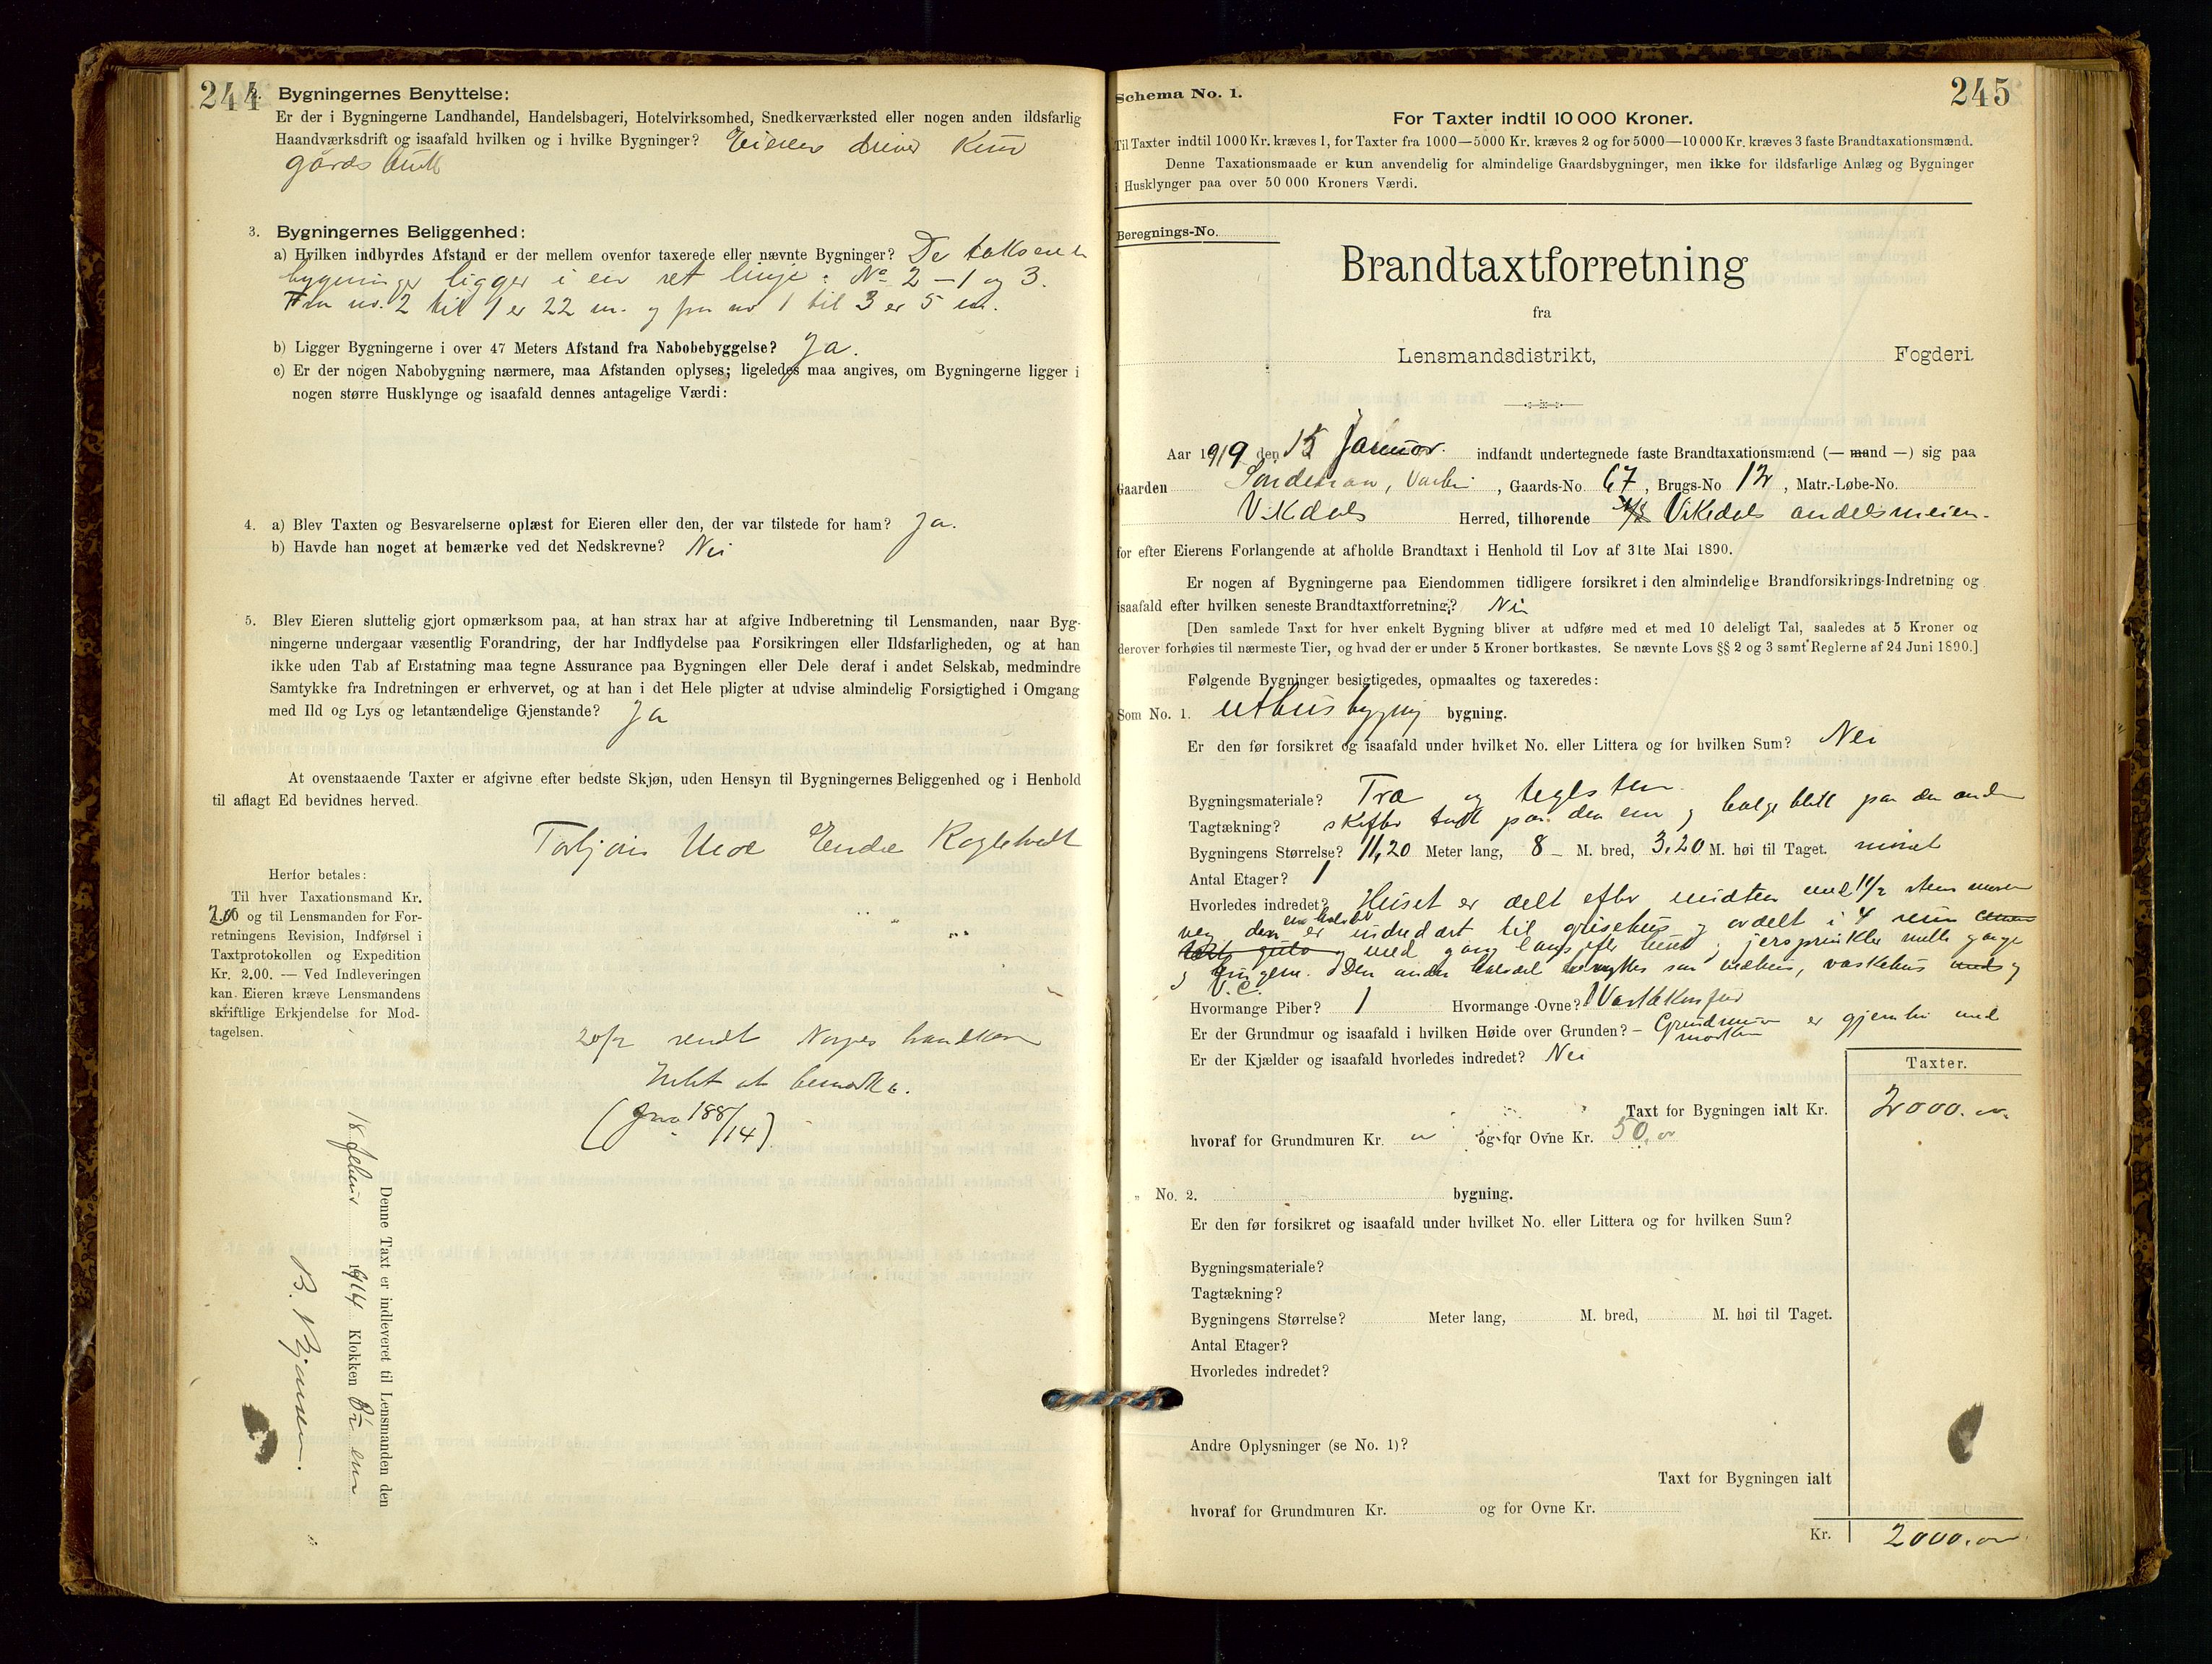 244
2. Bygningernes Benyttelse:
Er der i Bygningerne Landhandel, Handelsbageri, Hotelvirksomhed, Snedkerværksted eller nogen anden ildsfarlig
Haandværksdrift og isaafald hvilken og i hvilke Bygninger? Eieren driver kun
gårdsbruk
3. Bygningernes Beliggenhed:
a) Hvilken indbyrdes Afstand er der mellem ovenfor taxerede eller nævnte Bygninger? De takserte
bygninger ligger i en ret linje: No 2 – 1 og 3.
Fra no. 2 til 1 er 22 m. og fra no 1 til 3 er 5 m.
b) Ligger Bygningerne i over 47 Meters Afstand fra Nabobebyggelse? Ja.
c) Er der nogen Nabobygning nærmere, maa Afstanden oplyses; ligeledes maa angives, om Bygningerne ligger i
nogen større Husklynge og isaafald dennes antagelige Værdi:
4. a) Blev Taxten og Besvarelserne oplæst for Eieren eller den, der var tilstede for ham? Ja.
b) Havde han noget at bemærke ved det Nedskrevne? Nei
5. Blev Eieren sluttelig gjort opmærksom paa, at han strax har at afgive Indberetning til Lensmanden, naar Byg-
ningerne undergaar væsentlig Forandring, der har Indflydelse paa Forsikringen eller Ildsfarligheden, og at han
ikke uden Tab af Erstatning maa tegne Assurance paa Bygningen eller Dele deraf i andet Selskab, medmindre
Samtykke fra Indretningen er erhvervet, og at han i det Hele pligter at udvise almindelig Forsigtighed i Omgang
med Ild og Lys og letantændelige Gjenstande? Ja
At ovenstaaende Taxter er afgivne efter bedste Skjøn, uden Hensyn til Bygningernes Beliggenhed og i Henhold
til aflagt Ed bevidnes herved.
Torbjørn Endre
Herfor betales:
Til hver Taxationsmand Kr.
2.00 og til Lensmanden for For-
retningens Revision, Indførsel i
Taxtprotokollen og Expedition
Kr. 2.00. — Ved Indleveringen
kan Eieren kræve Lensmandens
skriftlige Erkjendelse for Mod-
tagelsen.
20/2 sendt Norges brandkasse
Intet at bemerke.
(Jno 188/14)
Denne Taxt er indleveret til Lensmanden den
18 februar 1914 Klokken 8½ em
B.
245
Schema No. 1.
For Taxter indtil 10 000 Kroner.
Til Taxter indtil 1000 Kr. kræves 1, for Taxter fra 1000—5000 Kr. kræves 2 og for 5000—10 000 Kr. kræves 3 faste Brandtaxationsmænd.
Denne Taxationsmaade er kun anvendelig for almindelige Gaardsbygninger, men ikke for ildsfarlige Anlæg og Bygninger
i Husklynger paa over 50 000 Kroners Værdi.
Beregnings-No.
Brandtaxtforretning
fra
Lensmandsdistrikt, Fogderi.
Aar 1919 den 15 Januar. indfandt undertegnede faste Brandtaxationsmænd (— mand —) sig paa
Gaarden , Gaards-No. 67, Brugs-No 12, Matr.-Løbe-No.
Vikedals Herred, tilhørende A/S Vikedals andelsmeieri
for efter Eierens Forlangende at afholde Brandtaxt i Henhold til Lov af 31te Mai 1890.
Er nogen af Bygningerne paa Eiendommen tidligere forsikret i den almindelige Brandforsikrings-Indretning og
isaafald efter hvilken seneste Brandtaxtforretning? Nei
[Den samlede Taxt for hver enkelt Bygning bliver at udføre med et med 10 deleligt Tal, saaledes at 5 Kroner og
derover forhøies til nærmeste Tier, og hvad der er under 5 Kroner bortkastes. Se nævnte Lovs §§ 2 og 3 samt Reglerne af 24 Juni 1890.]
Følgende Bygninger besigtigedes, opmaaltes og taxeredes:
Som No. 1. uthusbygnig bygning.
Er den før forsikret og isaafald under hvilket No. eller Littera og for hvilken Sum? Nei
Bygningsmateriale? Træ og teglsten.
Tagtækning? skifer tækt paa den ene og bølgeblik paa den anden
Bygningens Størrelse? 11,20 Meter lang, 8 – M. bred, 3,20 M. høi til Taget. mønet
Antal Etager? 1
Hvorledes indredet? Huset er delt efter midten med 1½ stens murer
væg den ene halvdel er indredet til grisehus og avdelt i 4 rum
og med gang langs efter huset og jernsprinkler mellem gange
og bingene. Den anden halvdel benyttes som vedhus, vaskehus og
V.C.
Hvormange Piber? 1 Hvormange Ovne? 1 Vaskekomfur
Er der Grundmur og isaafald i hvilken Høide over Grunden? – Grundmur er med
Er der Kjælder og isaafald hvorledes indredet? Nei
Taxter.
Taxt for Bygningen ialt Kr. 2000.
hvoraf for Grundmuren Kr. og for Ovne Kr. 50,
„ No. 2. bygning.
Er den før forsikret og isaafald under hvilket No. eller Littera og for hvilken Sum?
Bygningsmateriale?
Tagtækning?
Bygningens Størrelse? Meter lang, M. bred, M. høi til Taget.
Antal Etager?
Hvorledes indredet?
Andre Oplysninger (se No. 1)?
Taxt for Bygningen ialt
hvoraf for Grundmuren Kr. og for Ovne Kr.
Kr. 2000.